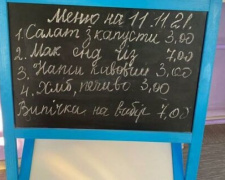 Меню на 11.11.21.
1. Салат з капусти 3,00
2. Мак 7,00
3. Напій кавовий 3,00
4. Хліб, печиво 3,00
Випічка на вибір 7,00